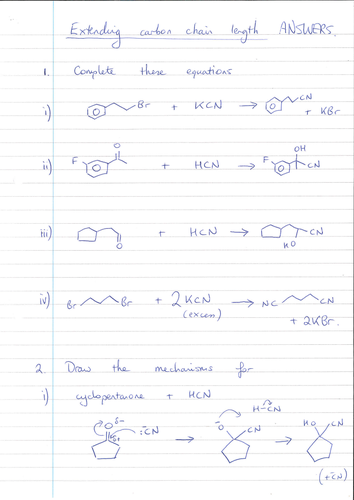 Extending carbon chain length ANSWERS.
1. Complete these equations
i) Br + KCN → CN + KBr
ii) F O + HCN → F OH CN
iii) O + HCN → HO CN
iv) Br Br + 2KCN (excess) → NC CN + 2KBr.
2. Draw the mechanisms for
i) cyclopentanone + HCN
O δ- δ+ :C̄N → Ō CN H-CN → HO CN (+ C̄N)